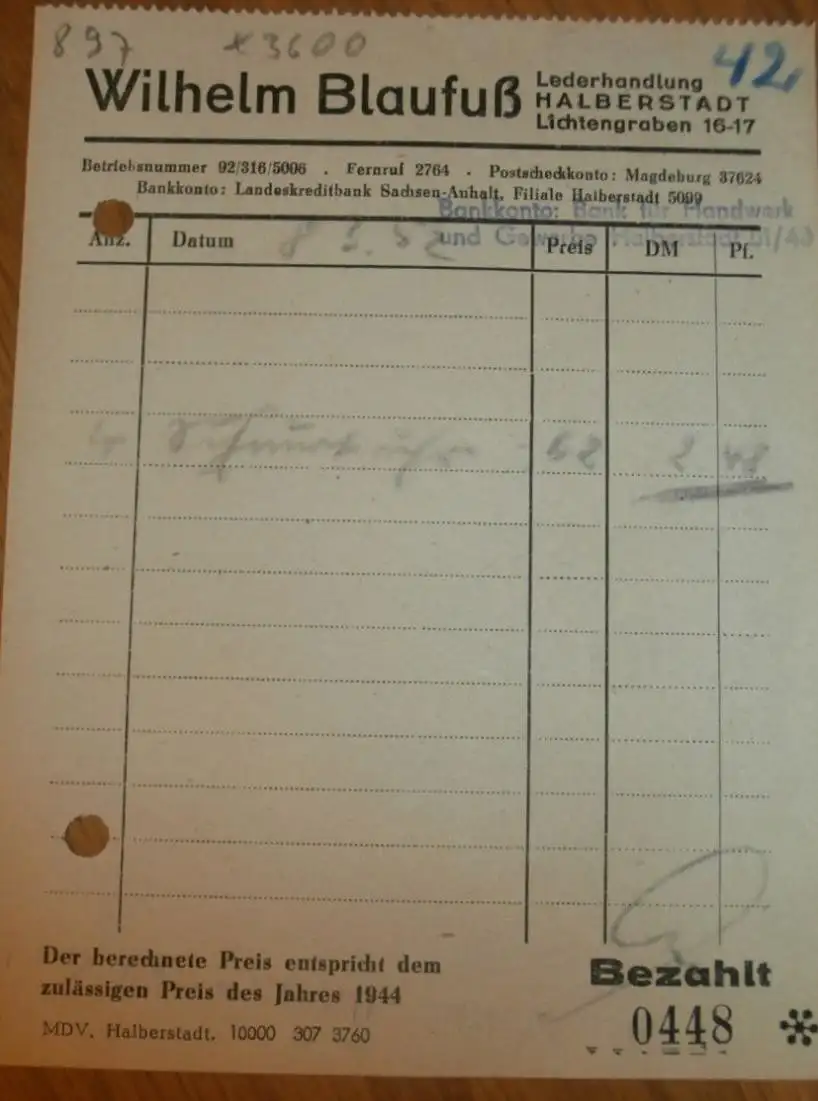 897 × 3600 42
Wilhelm Blaufuß
Lederhandlung
HALBERSTADT
Lichtengraben 16-17
Betriebsnummer 92/316/5006 . Fernruf 2764 . Postscheckkonto: Magdeburg 37624
Bankkonto: Landeskreditbank Sachsen-Anhalt, Filiale Halberstadt 5099
Bankkonto: Bank für Handwerk
und Gewerbe Halberstadt
Anz. Datum Preis DM Pf.
4 62 2 48
Der berechnete Preis entspricht dem
zulässigen Preis des Jahres 1944
MDV, Halberstadt. 10000 307 3760
Bezahlt
0448 *